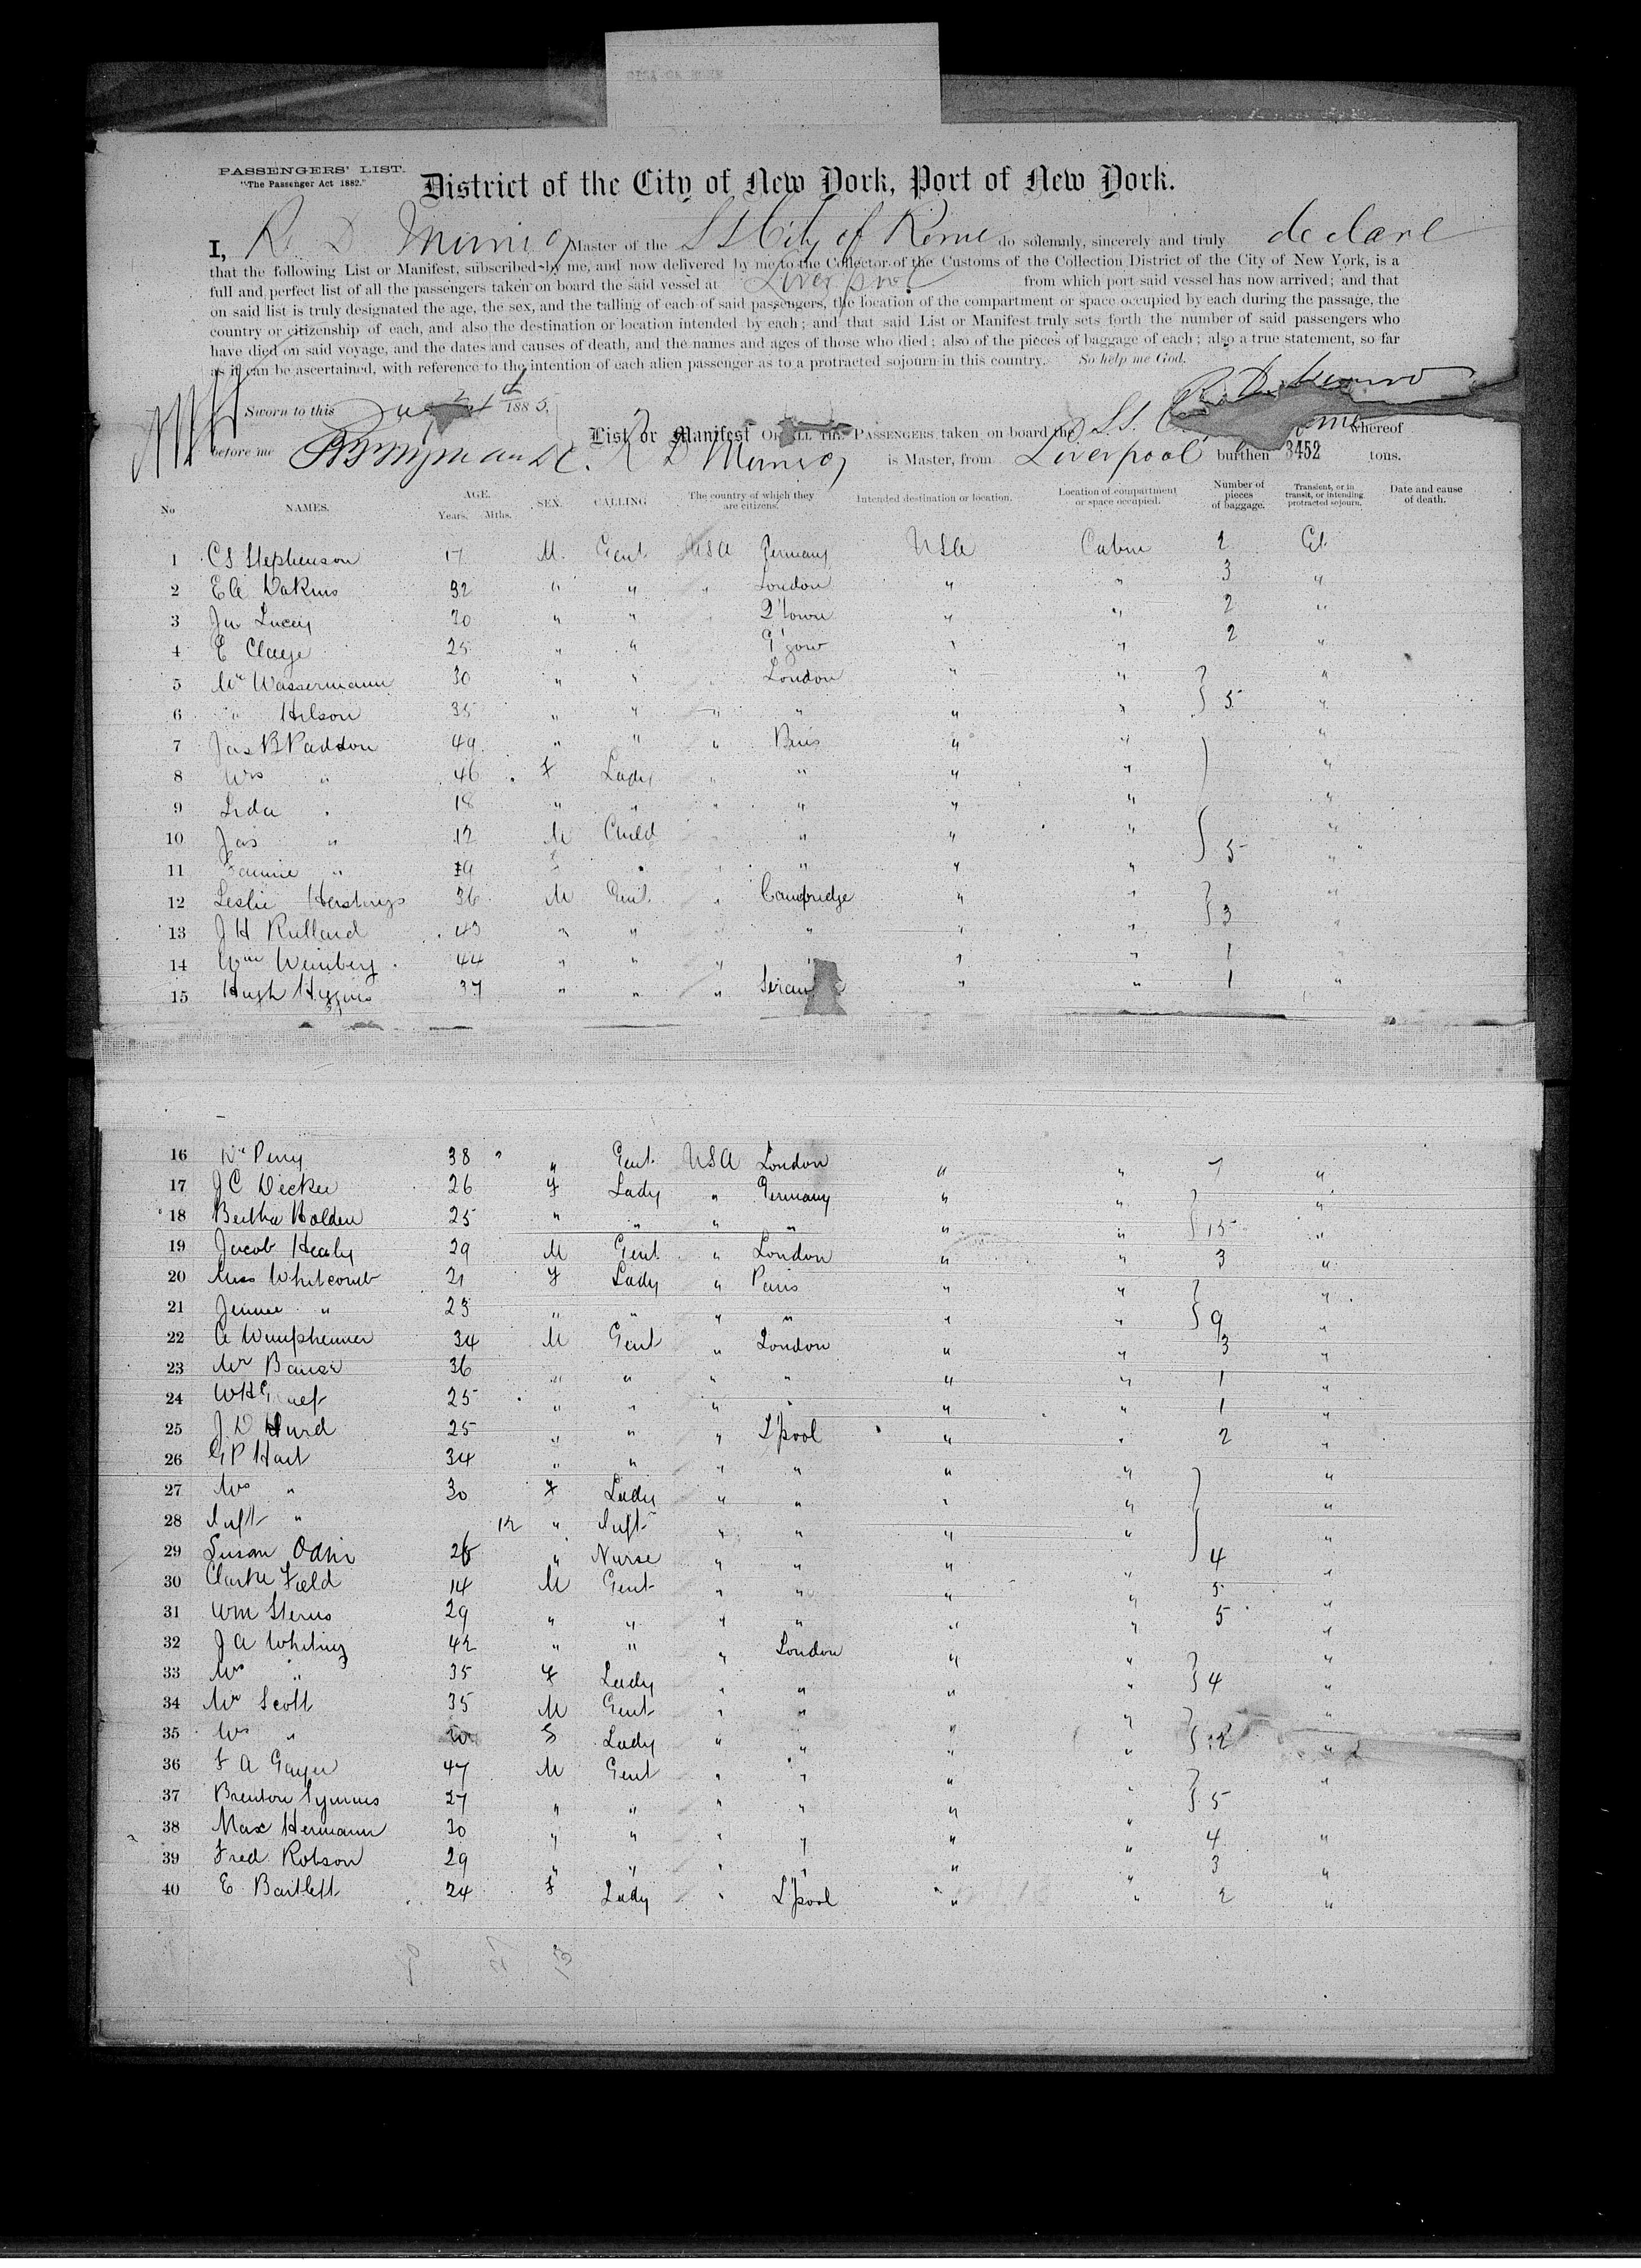 PASSENGERS' LIST.
"The Passenger Act 1882."
District of the City of New York, Port of New York.
I, R. D. Munro, Master of the SS City of Rome do solemnly, sincerely and truly declare
that the following List or Manifest, subscribed by me, and now delivered by me to the Collector of the Customs of the Collection District of the City of New York, is a
full and perfect list of all the passengers taken on board the said vessel at Liverpool from which port said vessel has now arrived; and that
on said list is truly designated the age, the sex, and the calling of each of said passengers, the location of the compartment or space occupied by each during the passage, the
country or citizenship of each, and also the destination or location intended by each; and that said List or Manifest truly sets forth the number of said passengers who
have died on said voyage, and the dates and causes of death, and the names and ages of those who died; also of the pieces of baggage of each; also a true statement, so far
as it can be ascertained, with reference to the intention of each alien passenger as to a protracted sojourn in this country. So help me God.
R. D. Munro
Sworn to this 1885,
before me
List or Manifest OF ALL THE PASSENGERS taken on board the SS. whereof
R D Munro, is Master, from Liverpool burthen 3452 tons.
No NAMES. AGE. Years. Mths. SEX. CALLING The country of which they are citizens. Intended destination or location. Location of compartment or space occupied. Number of pieces of baggage. Transient, or in transit, or intending protracted sojourn. Date and cause of death.
1 C S Stephenson 17 M. Gent USA Germany USA Cabin 2
2 E A Dakins 32 " " " London " " 3 "
3 Jn Lucey 30 " " " Q'town " " 2 "
4 E Claye 25 " " " G'gow " " 2 "
5 Mr Wassermann 30 " " " London " " "
6 " Hilson 35 " " " " " " 5 "
7 Jas B Paddon 49 " " " " " "
8 Mrs " 46 F Lady " " " " "
9 Lida " 18 " " " " " " "
10 Jas " 12 M Child " " " " "
11 Fannie " " " " " " 5 "
12 Leslie Hastings 36 M Gent " Cambridge " " "
13 J H Rulland 43 " " " " " " 3 "
14 Wm Weinberg 44 " " " " " " 1 "
15 Hugh Higgins 37 " " " " " 1 "
16 Mr Perry 38 " Gent USA London " " "
17 J C Decker 26 F Lady " Germany " " "
18 Bertha Holden 25 " " " " " " 15 "
19 Jacob Healy 29 M Gent " London " " 3 "
20 Miss Whitcomb 21 F Lady " Paris " " "
21 Jennie " 23 " " " " " " 9 "
22 A Wimpheimer 34 M Gent " London " " 3 "
23 Mr 36 " " " " " " 1 "
24 W H 25 " " " " " " 1 "
25 J. D Hurd 25 " " " L'pool " " 2 "
26 G P Hart 34 " " " " " " "
27 Mrs " 30 F Lady " " " " "
28 Inft " 12 " Inft " " " " "
29 Susan " Nurse " " " " 4 "
30 Clarke Field 14 M Gent " " " " 5 "
31 Wm Sterns 29 " " " " " " 5 "
32 J A Whiting 42 " " " London " " "
33 Mrs " 35 F Lady " " " " 4 "
34 Mr Scott 35 M Gent " " " " "
35 Mrs " F Lady " " " " 12 "
36 F A 47 M Gent " " " " "
37 Brenton Symms 27 " " " " " " 5
38 Max Hermann 30 " " " " " " 4 "
39 Fred Robson 29 " " " " " " 3 "
40 E Bartlett 24 F Lady " L'pool " " 2 "